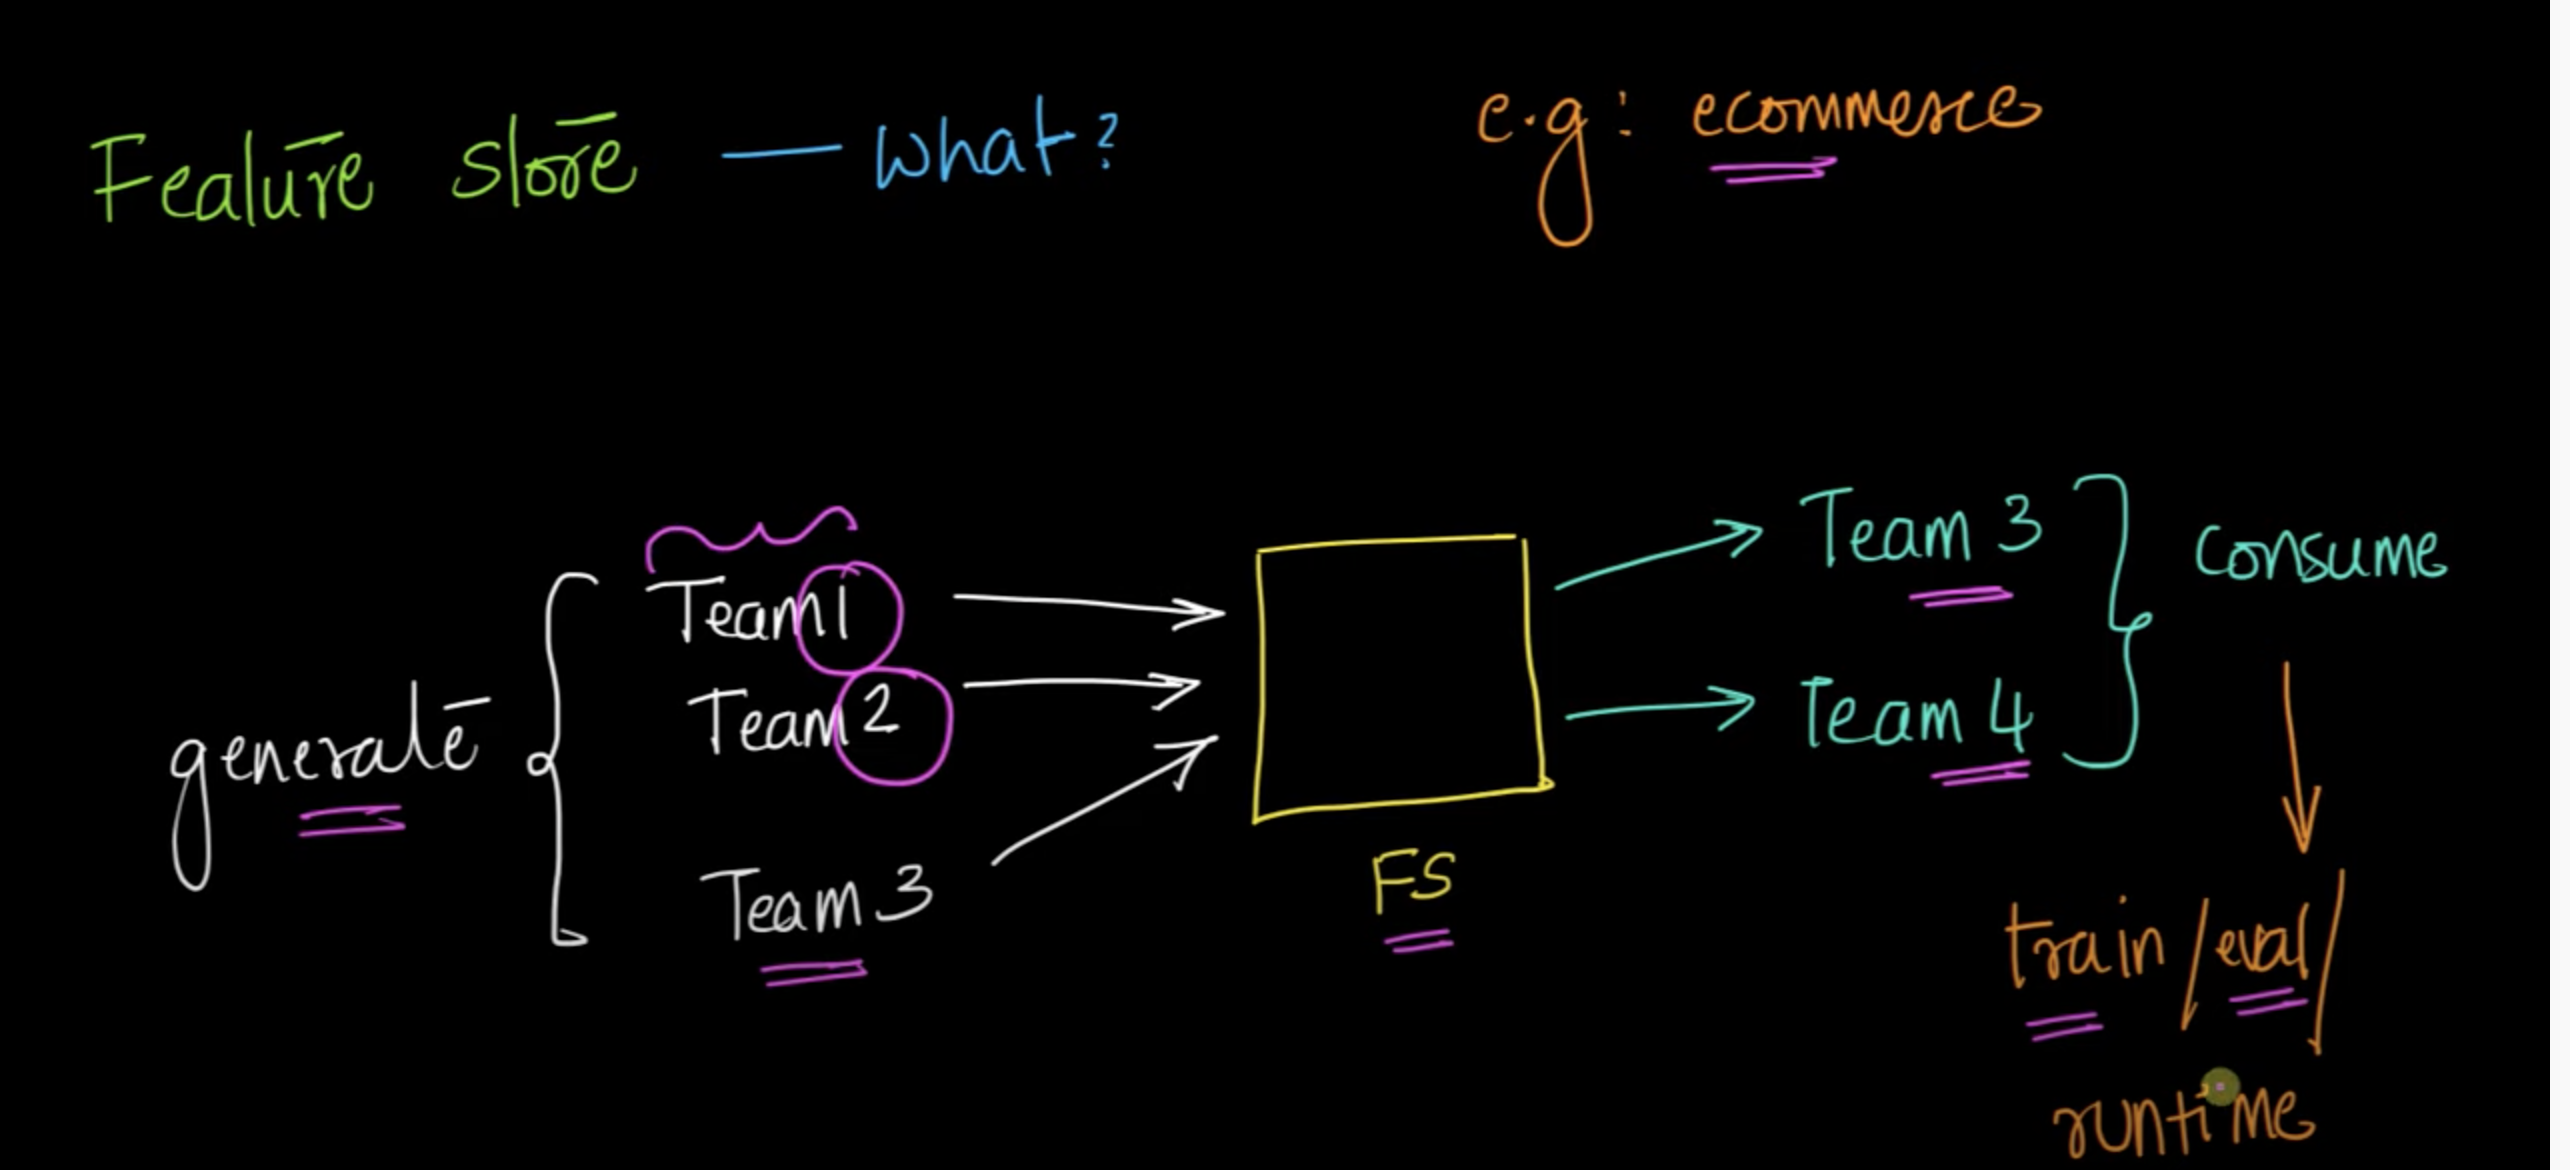 Feature store — what?
e.g: ecommerce
generate
Team 1
Team 2
Team 3
FS
Team 3
Team 4
consume
train / eval /
runtime